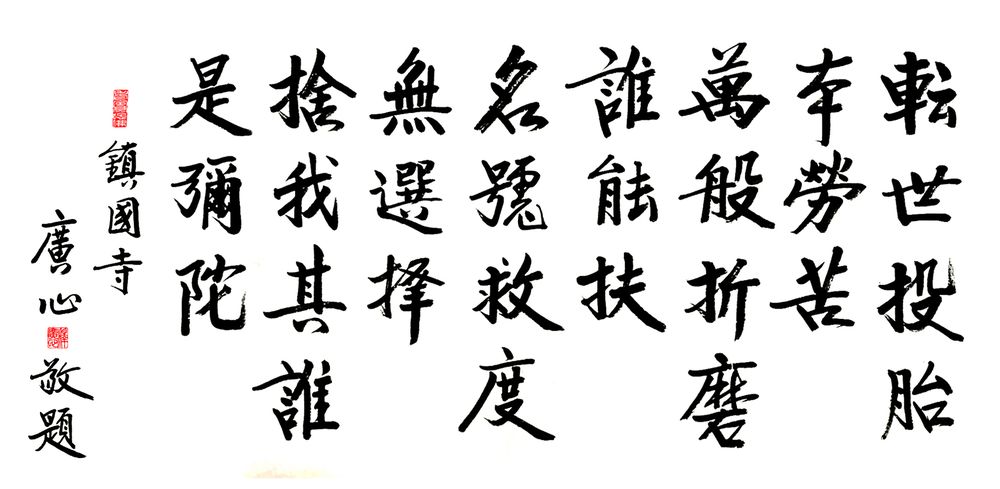 転世投胎
本勞苦
萬般折磨
誰能扶
名號救度
無選擇
捨我其誰
是彌陀
鎮國寺
廣心敬題